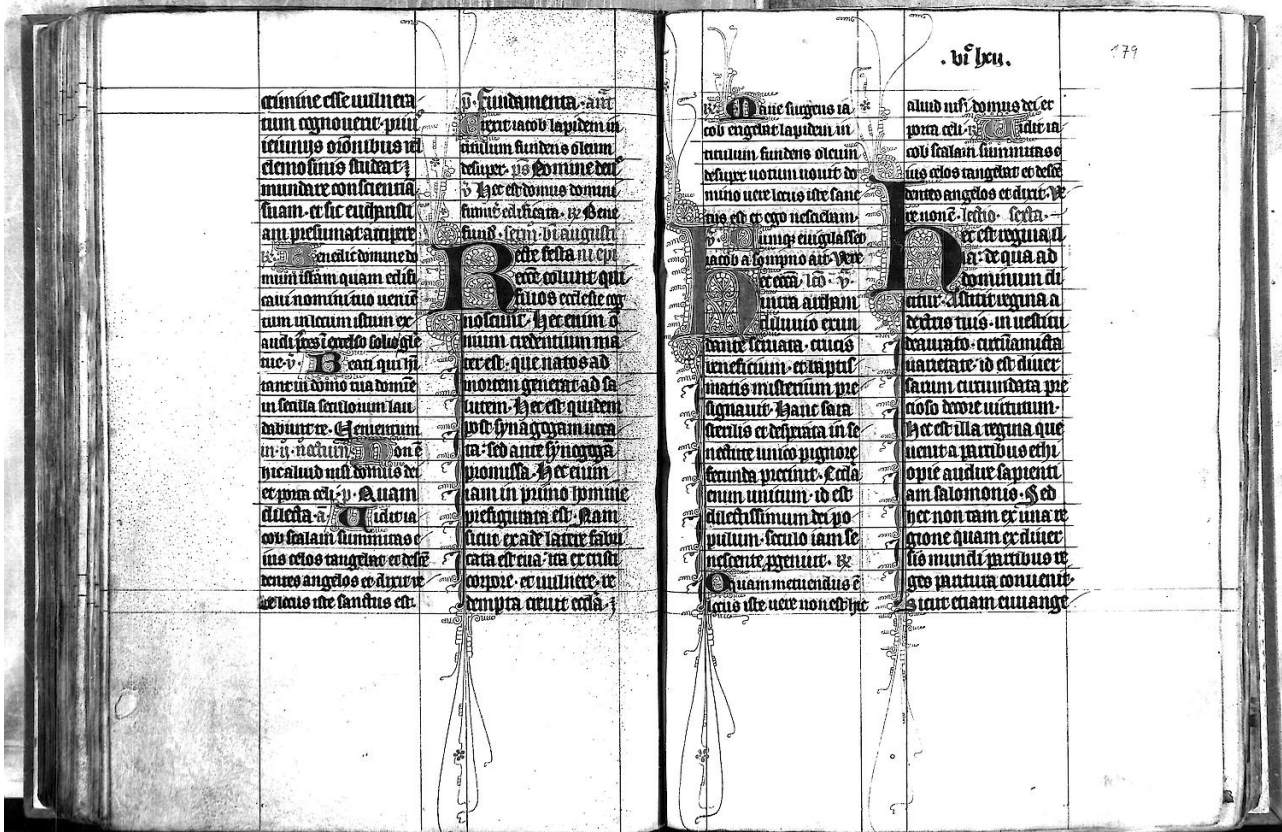 crimine esse uulnera
tum cognouerit· prius
ieiuniis or̄onibus ul̄
elemosinis studeat
mundare conscientiā
suam· et sic eucharisti
am presumat accipere
R̃ Benedic domine do
mum istam quam edifi
caui nomini tuo uenien̄
cium in locum istum ex
audi preces ī excelso solio glo
rie· v̄ Beati qui hī
tant in domo tua domīe
in secula seculorum lau
dabunt te· Uenientium
in· ij· nocturn̄ Non ē
hic aliud nisi domus dei
et porta celi· p̄· Quam
dilecta· ā· Uidit ia
cob scalam summitas e
ius celos tangebat et descē
dentes angelos et dixit ve
re locus iste sanctus est·
p̄· Fundamenta· ant̄
Erexit iacob lapidem in
titulum fundens oleum
desuper· ps̄ Domine deus
v̄ Hec est domus domini
firmit̄ edificata· R̃ Bene
fund̄· serm̄· bī augusti
Recte festa ni epī
ecc̄e colunt qui
filios ecclesie cog
noscunt· Hec enim ō
nium credentium ma
ter est· que natos ad
mortem generat ad sa
lutem· Hec est quidem
post synagogam uoca
ta· sed ante synagogā
promissa· Hec enim
iam in primo homine
prefigurata est· Nam
sicut ex ade latere fabri
cata est eua· ita ex cristi
corpore· et uulnere· re
dempta creuit eccl̄a·
·vi͞c lxii·
179
R̃ Mane surgens ia
cob erigebat lapidem in
titulum fundens oleum
desuper uotum uouit do
mino uere locus iste sanc
tus est et ego nesciebam·
v̄· Cumque euigilasset
iacob a sompno ait· Vere
Hec ecc̄a· lc̄o· v̄·
intra archam
diluuio exun
dante seruata· crucis
beneficium· et baptis
matis misterium pre
signauit· Hanc sara
sterilis et desperata in se
nectute unico pignore
fecunda precinit· Eccl̄a
enim unitum· id est
dilectissimum dei po
pulum· seculo iam se
nescente ꝓgenuit· R̃
Quam metuendus ē
locus iste uere non est hic
aliud nisi domus dei et
porta celi· R̃ Uidit ia
cob scalam summitas e
ius celos tangebat et descē
dentes angelos et dixit· Ve
re non ē· lectio· sexta·
Hec est regina il
la· de qua ad
dominum di
citur· Astitit regina a
dextris tuis· in uestitu
deaurato· circumamicta
uarietate· id est diuer
sarum circumdata pre
cioso decore uirtutum·
Hec est illa regina que
uenit a partibus ethi
opie audire sapienti
am salomonis· Sed
hec non tam ex una re
gione quam ex diuer
sis mundi partibus re
ges paritura conuenit·
Sicut etiam euuange